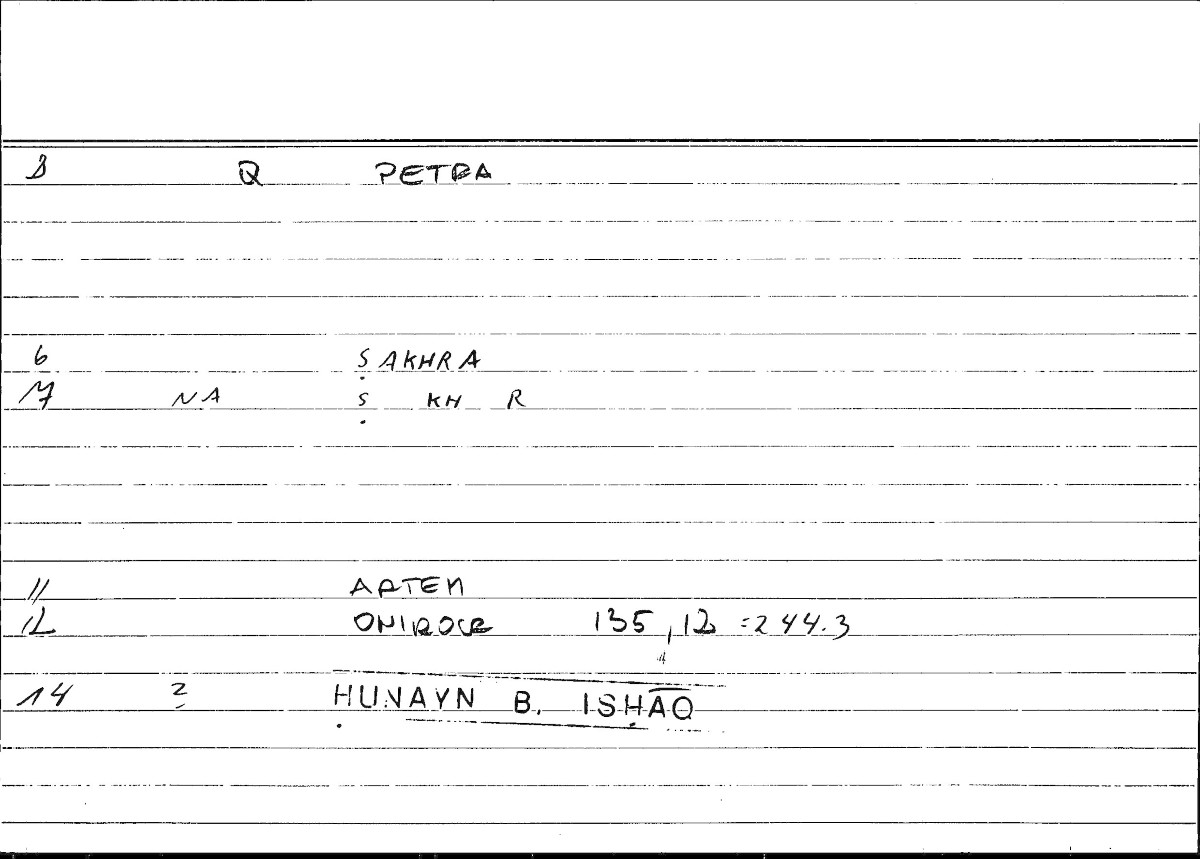 Q PETRA
6 ṢAKHRA
7 NA Ṣ KH R
11 ARTEM
12 ONIROCR 135,12 =244.3
14 2 ḤUNAYN B. ISḤĀQ